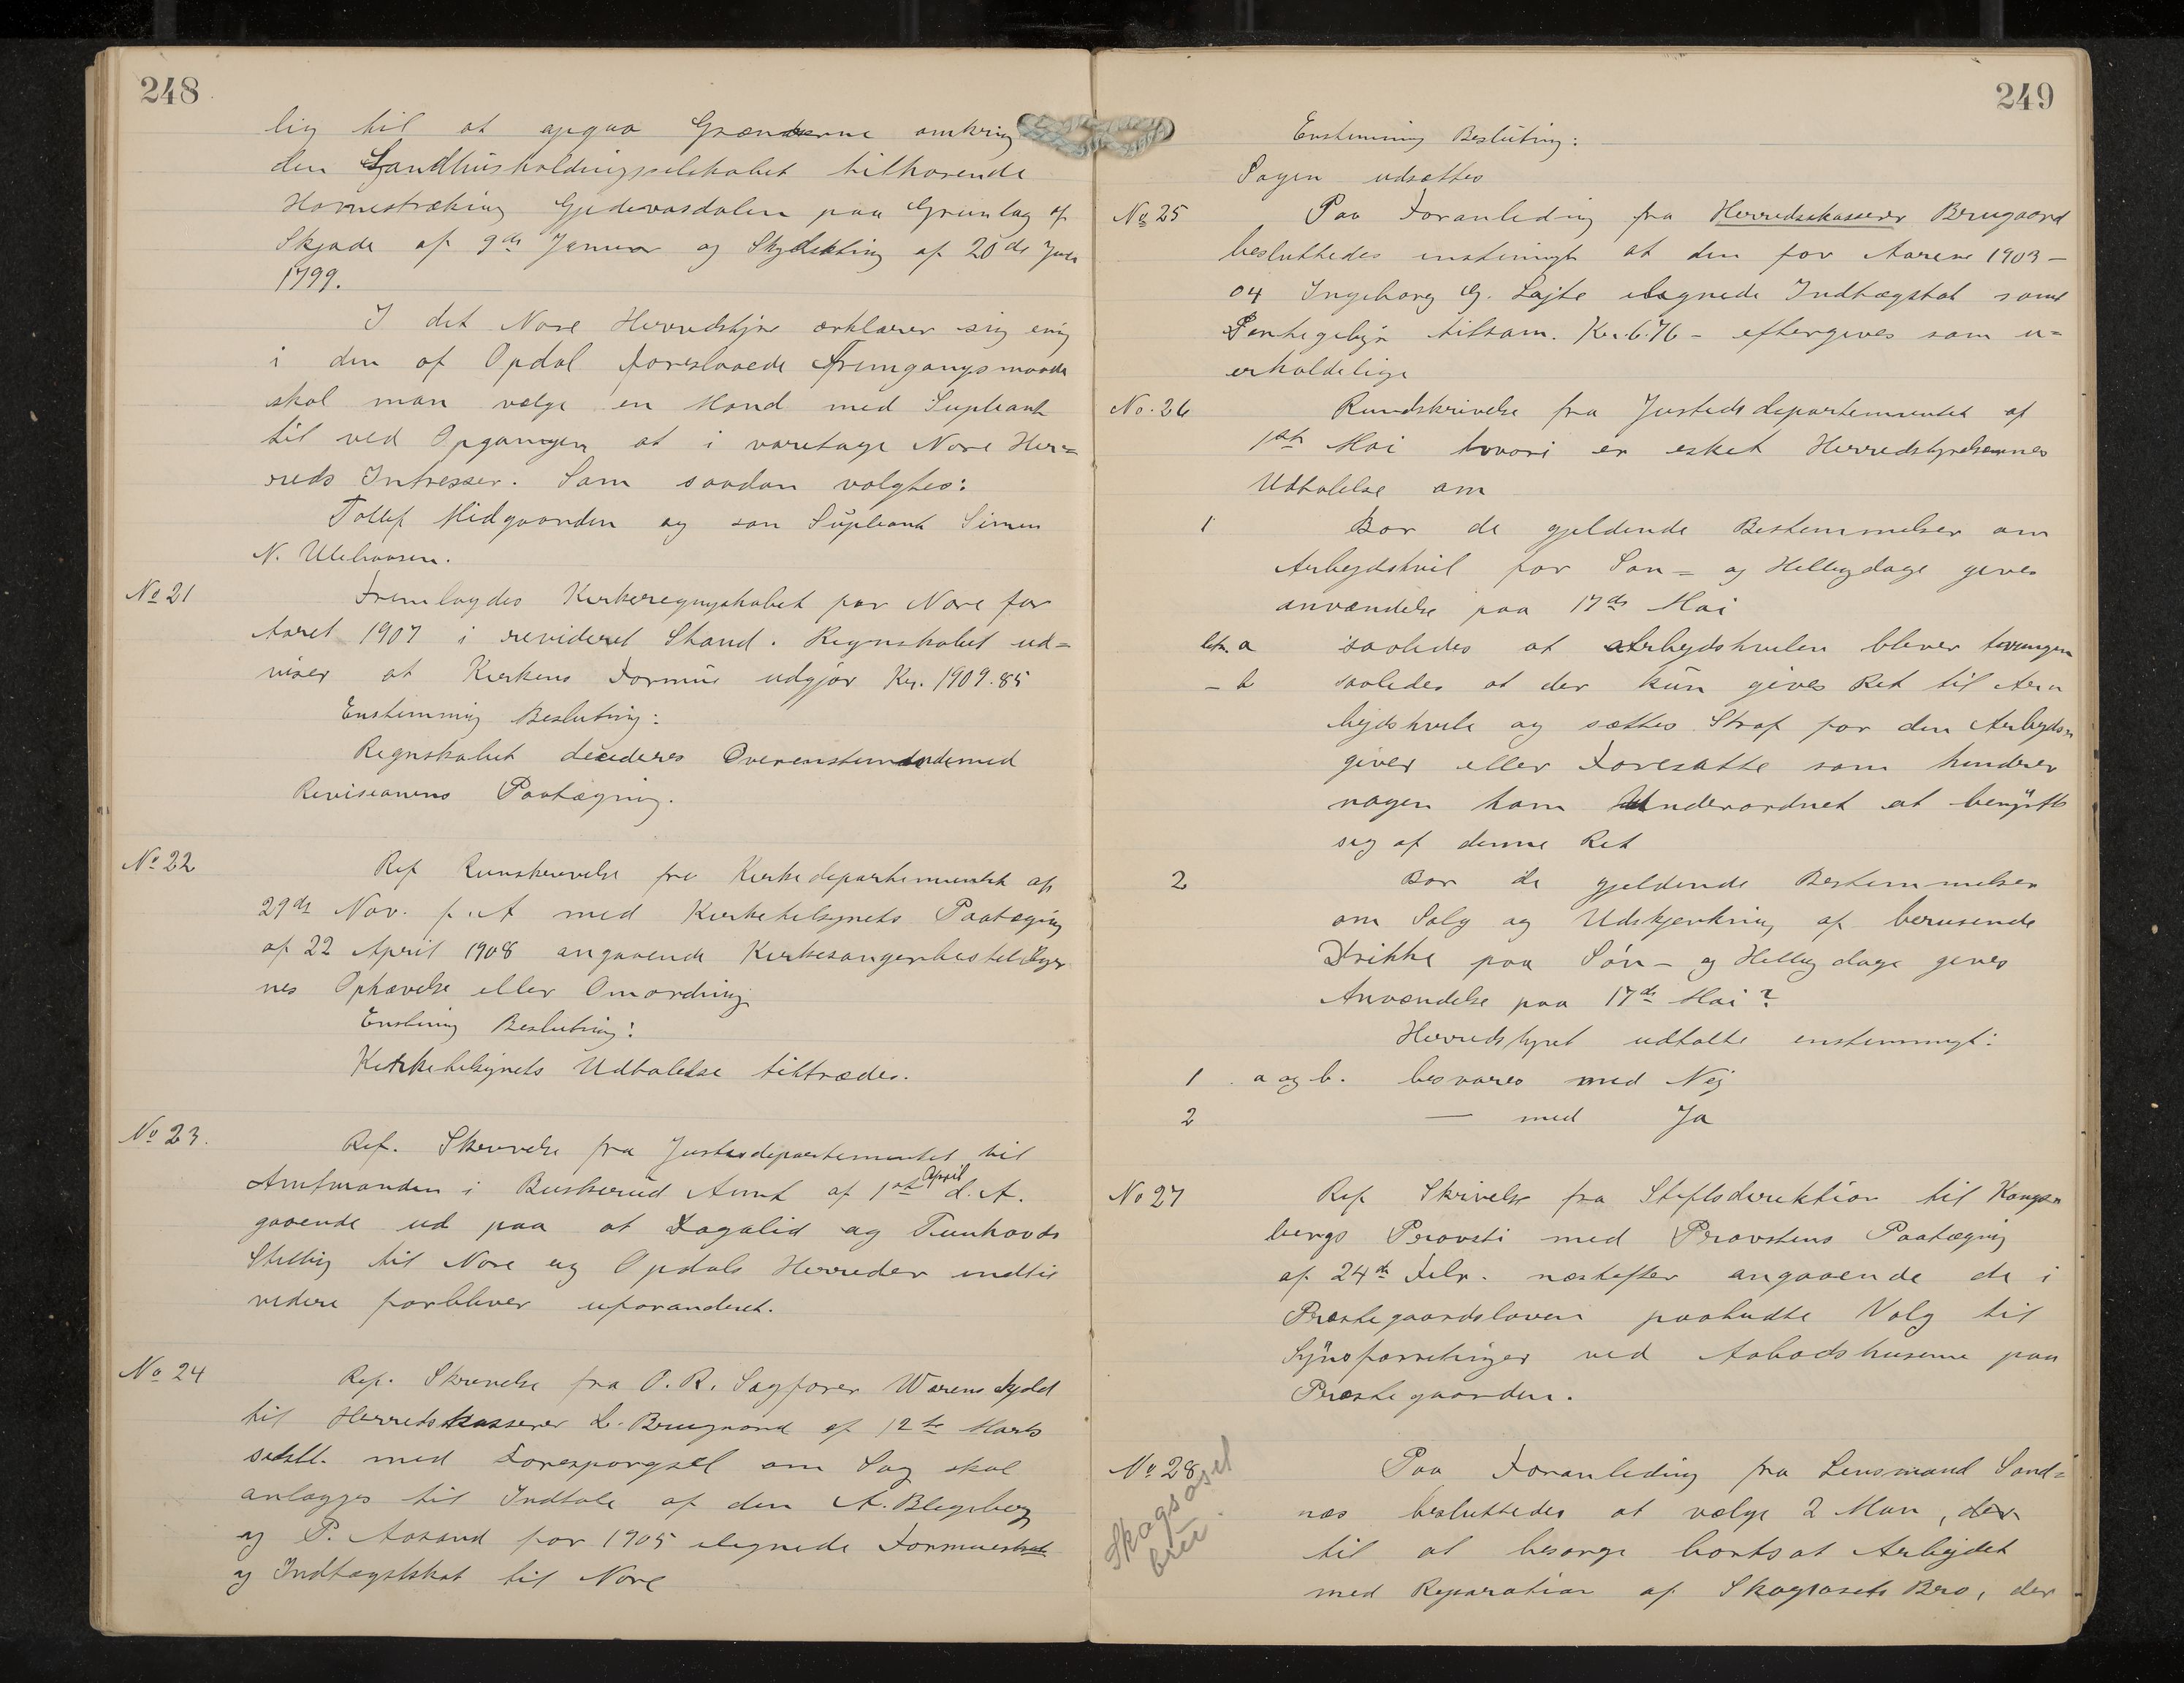 248
lig til at opgaa Grænserne omkring
den Landhusholdningsselskabet tilhørende
Havnestrækning Gjedevasdalen paa Grunlag af
Skjøde af 9de Januar og Skyldsetting af 20de Juni
1799.
I det Nore Herredstyre erklærer sig enig
i den af Opdal foreslaaede Fremgangsmaade
skal man vælge en Mand med Supleant
til ved Opgangen at i varetage Nore Her=
reds Intresser. Som saadan valgtes:
Tollef Midgaarden og som Supleant Simen
N. Ulehaasen.
No 21 Fremlagdes Kirkeregnskabet for Nore for
Aaret 1907 i revideret Stand. Regnskabet ud=
viser at Kirkens Formue udgjør Kr. 1909.85
Enstemmig Beslutning:
Regnskabet decideres Overenstemmende med
Revisionens Paategning.
No 22 Ref Runskrivelse fra Kirkedepartementet af
29de Nov. f. A med Kirketilsynets Paategning
af 22 April 1908 angaaende Kirkesangerbestillinger
nes Ophævelse eller Omordning
Enstemig Beslutning:
Kirketilsynets Udtalelse tiltrædes.
No 23. Ref. Skrivelse fra Justisdepartementet til
Amtmanden i Buskerud Amt af 1ste April d. A.
gaaende ud paa at Dagalid og Tunhovds
Stilling til Nore og Opdals Herreder indtil
videre forbliver uforandret.
No 24 Ref. Skrivelse fra O. R. Sagfører Warenskjold
til Herredskasserer L. Brugaard af 12te Marts
sidstl. med Forespørgsel om Sag skal
anlægges til Indtale af den A. Blegeberg
og P. Aasand for 1905 ilignede Formueskat
og Indtægtskat til Nore
249
Enstemmig Beslutning:
Sagen udsættes
No 25 Paa Foranledning fra Herredskasserer Brugaard
besluttedes enstemigt at den for Aarene 1903 –
04 Ingeborg G. Løjte ilignede Indtægstat samt
tilsam. Kr. 6.76 – eftergives som u=
erholdelige
No. 26 Rundskrivelse fra Justisdepartementet af
1ste Mai hvori er esket Herredstyrelsernes
Udtalelse om
1 Bør de gjeldende Bestemmelser om
Arbejdshvil for Søn= og Helligdage gives
anvændelse paa 17de Mai
litr. a saaledes at arbejdshvilen bliver tvungen
– b saaledes at der kun gives Ret til Ar=
bejdshvile og sættes Straf for den Arbejds=
giver eller Foresatte som hindrer
nogen ham Underordnet at benytte
sig af denne Ret
2 Bør de gjeldende Bestemmelser
om Salg og Udskjenkning af berusende
Drikke paa Søn– og Hellig dage gives
Anvændelse paa 17de Mai?
Herredstyret udtalte enstemmigt:
1 a og b. besvares med Nej
2 — med Ja
No 27 Ref Skrivelse fra Stiftsdirektion til Kongs=
bergs Provsti med Provstens Paategning
af 24de Febr. næstefter angaaende de i
Præstegaardsloven paabudte Valg til
Synsforretninger ved Aabodshusene paa
Præstegaarden.
No 28 Paa Foranledning fra Lensmand Sand=
næs besluttedes at vælge 2 Man, der
til at besørge bortsat Arbejdet
med Reparation af Skogsasets Bro, der
Skogsaset
brui